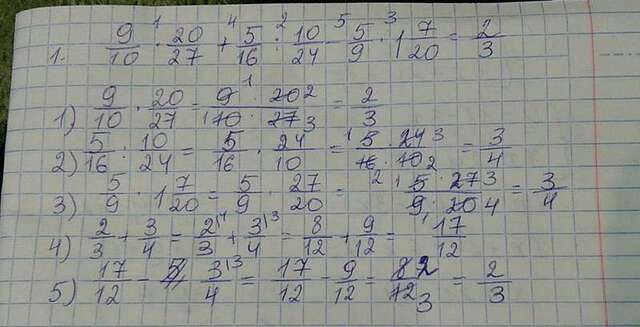 1. 9/10 ·¹ 20/27 +⁴ 5/16 :² 10/24 -⁵ 5/9 ·³ 1 7/20 = 2/3
1) 9/10 · 20/27 = 9¹ · 20 2/1 10 · 27 3 = 2/3
2) 5/16 : 10/24 = 5/16 · 24/10 = 1 5 · 24 3/16 · 10 2 = 3/4
3) 5/9 · 1 7/20 = 5/9 · 27/20 = 1 5 · 27 3/9 · 20 4 = 3/4
4) 2/3 + 3/4 = 2\4/3 + 3\3/4 = 8/12 + 9/12 = 17/12
5) 17/12 - 3\3/4 = 17/12 - 9/12 = 8 2/12 3 = 2/3